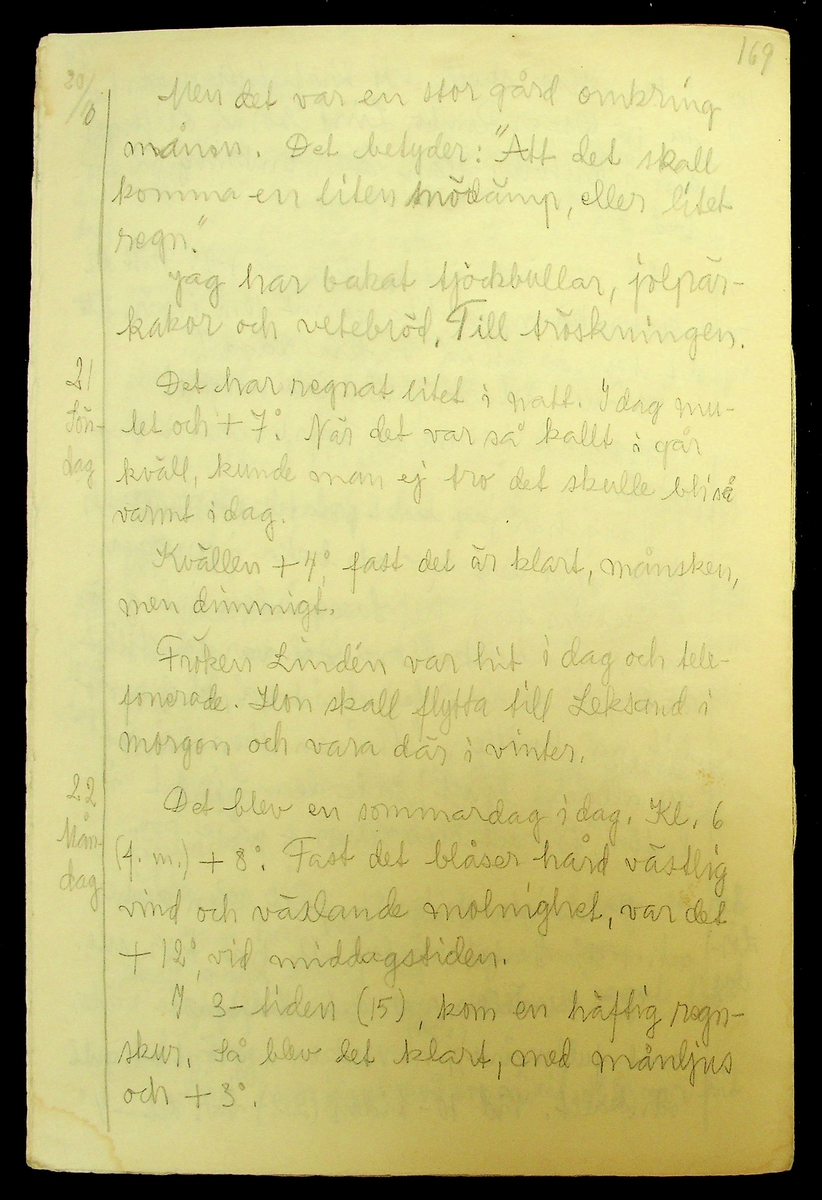 169
20/10
Men det var en stor gård omkring
månen. Det betyder: "Att det skall
komma en liten snödämp, eller litet
regn."
Jag har bakat tjockbullar, jolpär-
kakor och vetebröd. Till tröskningen.
21
Sön-
dag
Det har regnat litet i natt. I dag mu-
let och + 7°. När det var så kallt i går
kväll, kunde man ej tro det skulle bli så
varmt i dag.
Kvällen + 4°, fast det är klart, månsken,
men dimmigt.
Fröken Lindén var hit i dag och tele-
fonerade. Hon skall flytta till Leksand i
morgon och vara där i vinter.
22
Mån-
dag
Det blev en sommardag i dag. Kl. 6
(f. m.) + 8°. Fast det blåser hård västlig
vind och växlande molnighet, var det
+ 12°, vid middagstiden.
I 3-tiden (15), kom en häftig regn-
skur. Så blev det klart, med månljus
och + 3°.